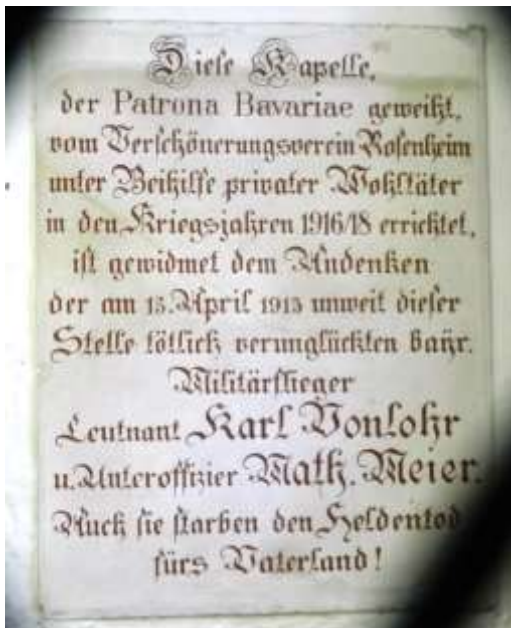 Diese Kapelle,
der Patrona Bavariae geweiht,
vom Verschönerungsverein Rosenheim
unter Beihilfe privater Wohltäter
in den Kriegsjahren 1916/18 errichtet,
ist gewidmet dem Andenken
der am 15. April 1913 unweit dieser
Stelle tötlich verunglückten bayr.
Militärflieger
Leutnant Karl Vonlohr
u. Unteroffizier Math. Meier.
Auch sie starben den Heldentod
fürs Vaterland!